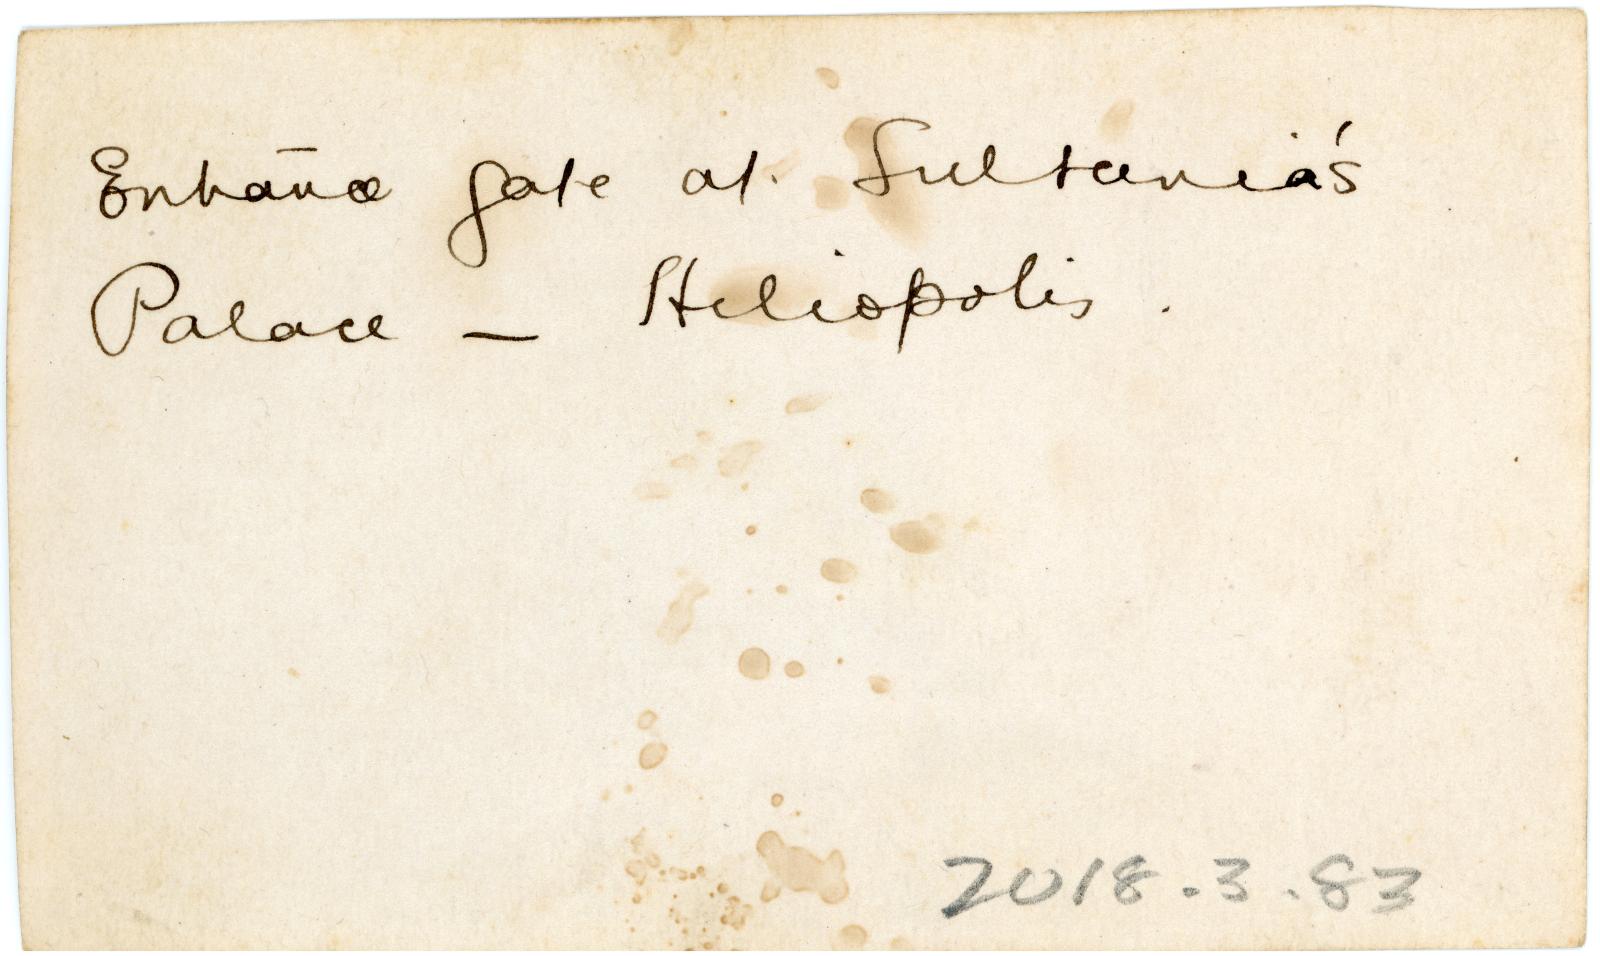 Entrance gate at. Sultania's
Palace — Heliopolis.
2018.3.83